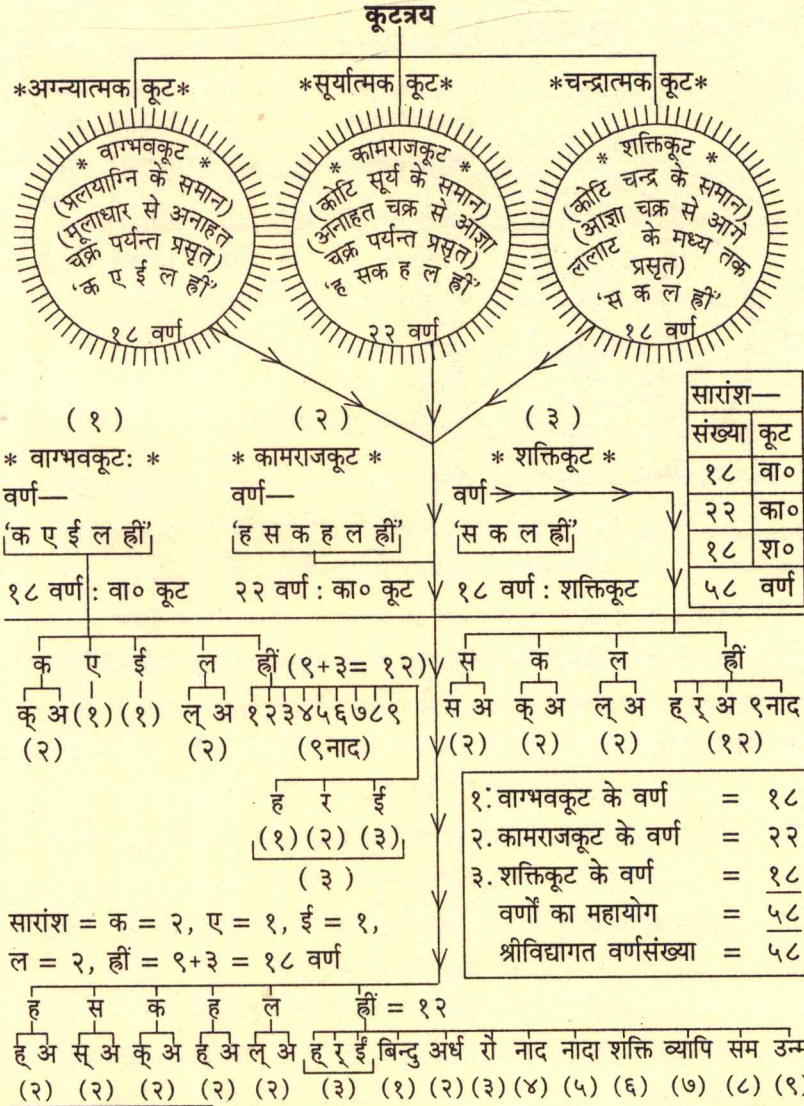 कूटत्रय
*अग्न्यात्मक कूट* *सूर्यात्मक कूट* *चन्द्रात्मक कूट*
* वाग्भवकूट *
(प्रलयाग्नि के समान)
(मूलाधार से अनाहत
चक्र पर्यन्त प्रसृत)
'क ए ई ल ह्रीं'
१८ वर्ण
* कामराजकूट *
(कोटि सूर्य के समान)
(अनाहत चक्र से आज्ञा
चक्र पर्यन्त प्रसृत)
'ह सक ह ल ह्रीं'
२२ वर्ण
* शक्तिकूट *
(कोटि चन्द्र के समान)
(आज्ञा चक्र से आगे
ललाट के मध्य तक
प्रसृत)
'स क ल ह्रीं'
१८ वर्ण
(१)
* वाग्भवकूट: *
वर्ण—
'क ए ई ल ह्रीं'
१८ वर्ण : वा० कूट
(२)
* कामराजकूट *
वर्ण—
'ह स क ह ल ह्रीं'
२२ वर्ण : का० कूट
(३)
* शक्तिकूट *
वर्ण
'स क ल ह्रीं'
१८ वर्ण : शक्तिकूट
सारांश—
संख्या कूट
१८ वा०
२२ का०
१८ श०
५८ वर्ण
क ए ई ल ह्रीं (९+३= १२)
क् अ (१) (१) ल् अ १२३४५६७८९
(२) (२) (९नाद)
ह र ई
(१) (२) (३)
(३)
स क ल ह्रीं
स अ क् अ ल् अ ह् र् अ ९नाद
(२) (२) (२) (१२)
१. वाग्भवकूट के वर्ण = १८
२. कामराजकूट के वर्ण = २२
३. शक्तिकूट के वर्ण = १८
वर्णों का महायोग = ५८
श्रीविद्यागत वर्णसंख्या = ५८
सारांश = क = २, ए = १, ई = १,
ल = २, ह्रीं = ९+३ = १८ वर्ण
ह स क ह ल ह्रीं = १२
ह् अ स् अ क् अ ह् अ ल् अ ह् र् ईं बिन्दु अर्ध रो नाद नादा शक्ति व्यापि सम उन्म
(२) (२) (२) (२) (२) (३) (१) (२) (३) (४) (५) (६) (७) (८) (९)